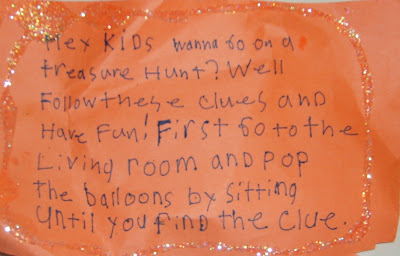 Hey KiDS wanna Go on a
treasure Hunt? Well
Follow these clues AND
Have Fun! First Go to the
Living room AND POP
the balloons by sitting
Until you FIND the Clue.